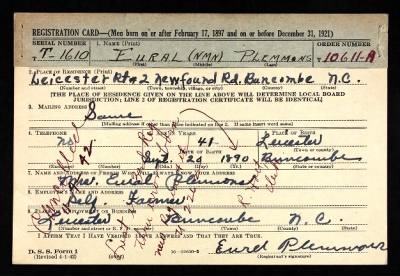 REGISTRATION CARD—(Men born on or after February 17, 1897 and on or before December 31, 1921)
SERIAL NUMBER 1. NAME (Print) ORDER NUMBER
T-1610 EURAL (NMN) PLEMMONS 10611-A
(First) (Middle) (Last)
2. PLACE OF RESIDENCE (Print)
Leicester Rt #2 Newfound Rd. Buncombe N.C.
(Number and street) (Town, township, village, or city) (County) (State)
[THE PLACE OF RESIDENCE GIVEN ON THE LINE ABOVE WILL DETERMINE LOCAL BOARD
JURISDICTION; LINE 2 OF REGISTRATION CERTIFICATE WILL BE IDENTICAL]
3. MAILING ADDRESS
Same
[Mailing address if other than place indicated on line 2. If same insert word same]
4. TELEPHONE 5. AGE IN YEARS 6. PLACE OF BIRTH
No 41 Leicester
DATE OF BIRTH
20 1890 Buncombe
7. NAME AND ADDRESS OF PERSON WHO WILL ALWAYS KNOW YOUR ADDRESS
Mrs. Eural Plemmons
8. EMPLOYER'S NAME AND ADDRESS
Self. Farmer
9. PLACE OF EMPLOYMENT OR BUSINESS
Leicester Buncombe N.C.
I AFFIRM THAT I HAVE VERIFIED ABOVE ANSWERS AND THAT THEY ARE TRUE.
D. S. S. Form 1
(Revised 4-1-42)
Eural Plemmons
(Registrant's signature)